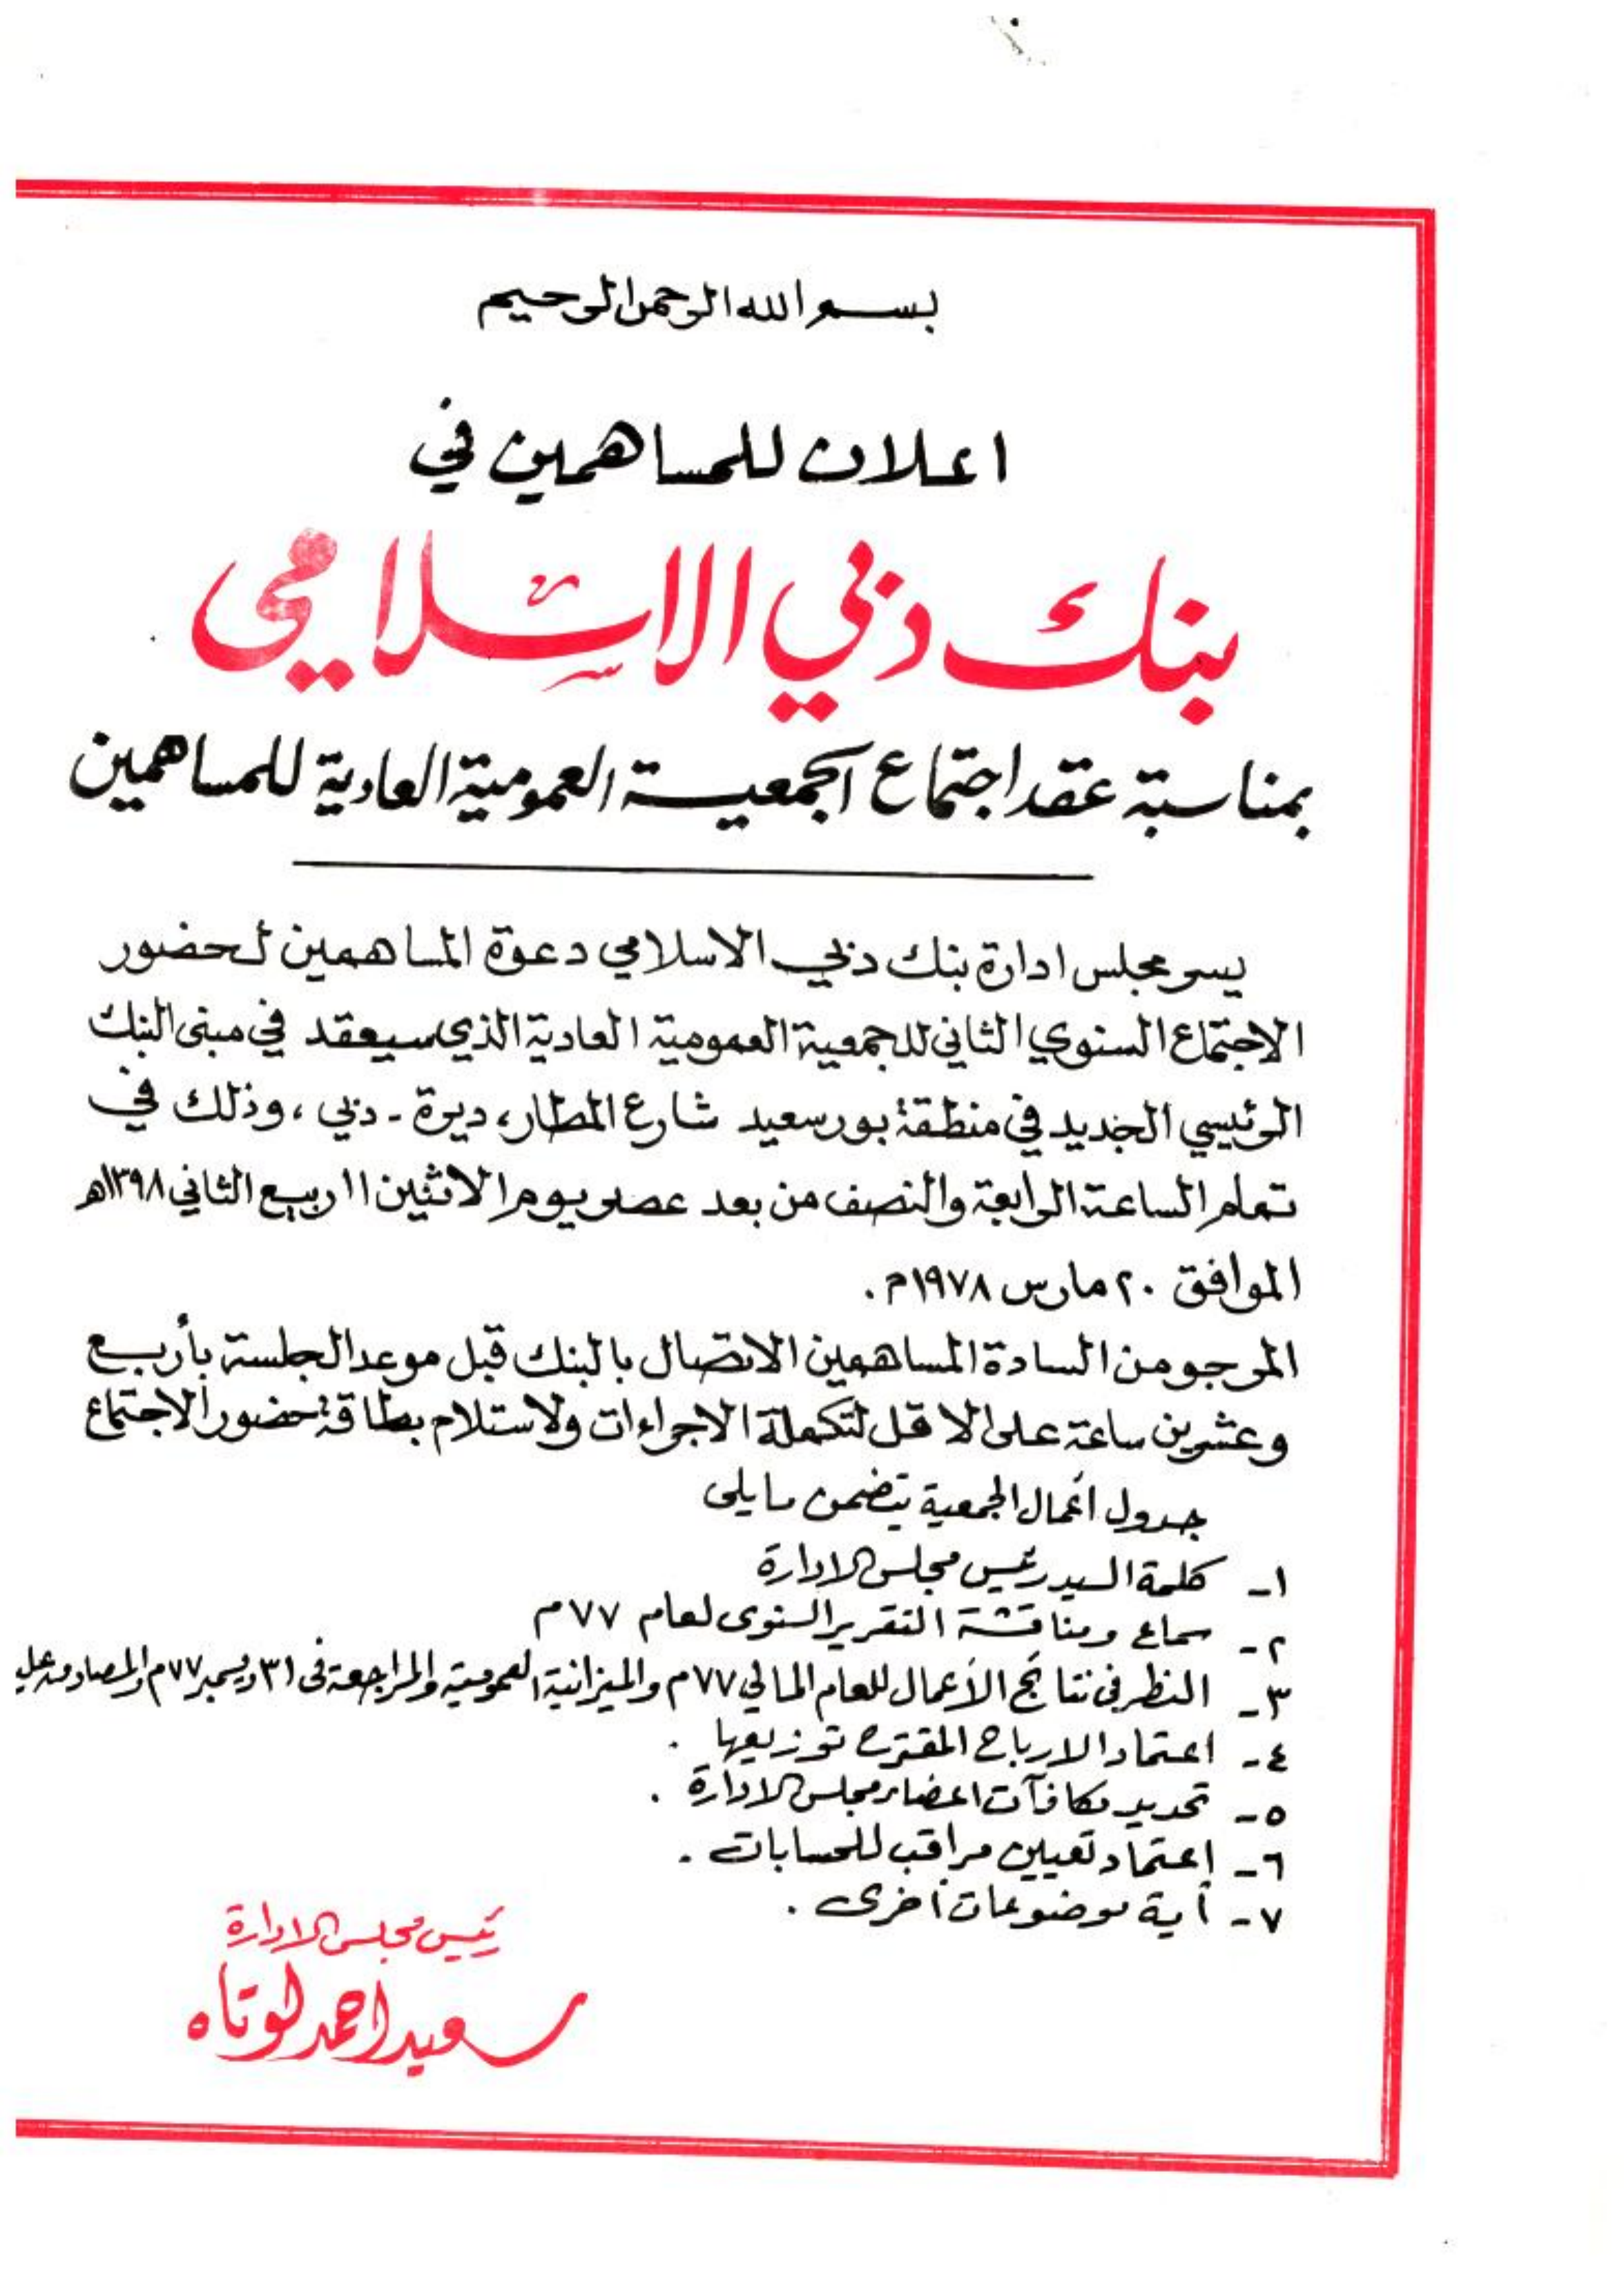 بسم الله الرحمن الرحيم
اعلان للمساهمين في
بنك دبي الاسلامي
بمناسبة عقد اجتماع الجمعية العمومية العادية للمساهمين
يسر مجلس ادارة بنك دبي الاسلامي دعوة المساهمين لحضور
الاجتماع السنوي الثاني للجمعية العمومية العادية الذي سيعقد في مبنى البنك
الرئيسي الجديد في منطقة بورسعيد شارع المطار، ديرة - دبي، وذلك في
تمام الساعة الرابعة والنصف من بعد عصر يوم الاثنين ١١ ربيع الثاني ١٣٩٨هـ
الموافق ٢٠ مارس ١٩٧٨م.
المرجو من السادة المساهمين الاتصال بالبنك قبل موعد الجلسة بأربع
وعشرين ساعة على الاقل لتكملة الاجراءات ولاستلام بطاقة حضور الاجتماع
جدول اعمال الجمعية يتضمن مايلى
١- كلمة السيد رئيس مجلس الادارة
٢- سماع ومناقشة التقرير السنوى لعام ٧٧م
٣- النظر فى نتائج الأعمال للعام المالي ٧٧م والميزانية العمومية والمراجعة فى ٣١ ديسمبر ٧٧م والمصادقة
٤- اعتماد الارباح المقترح توزيعها .
٥- تحديد مكافآت اعضاء مجلس الادارة .
٦- إعتماد تعيين مراقب للحسابات .
٧- أية موضوعات أخرى .
رئيس مجلس الادارة
سعيد احمد لوتاه